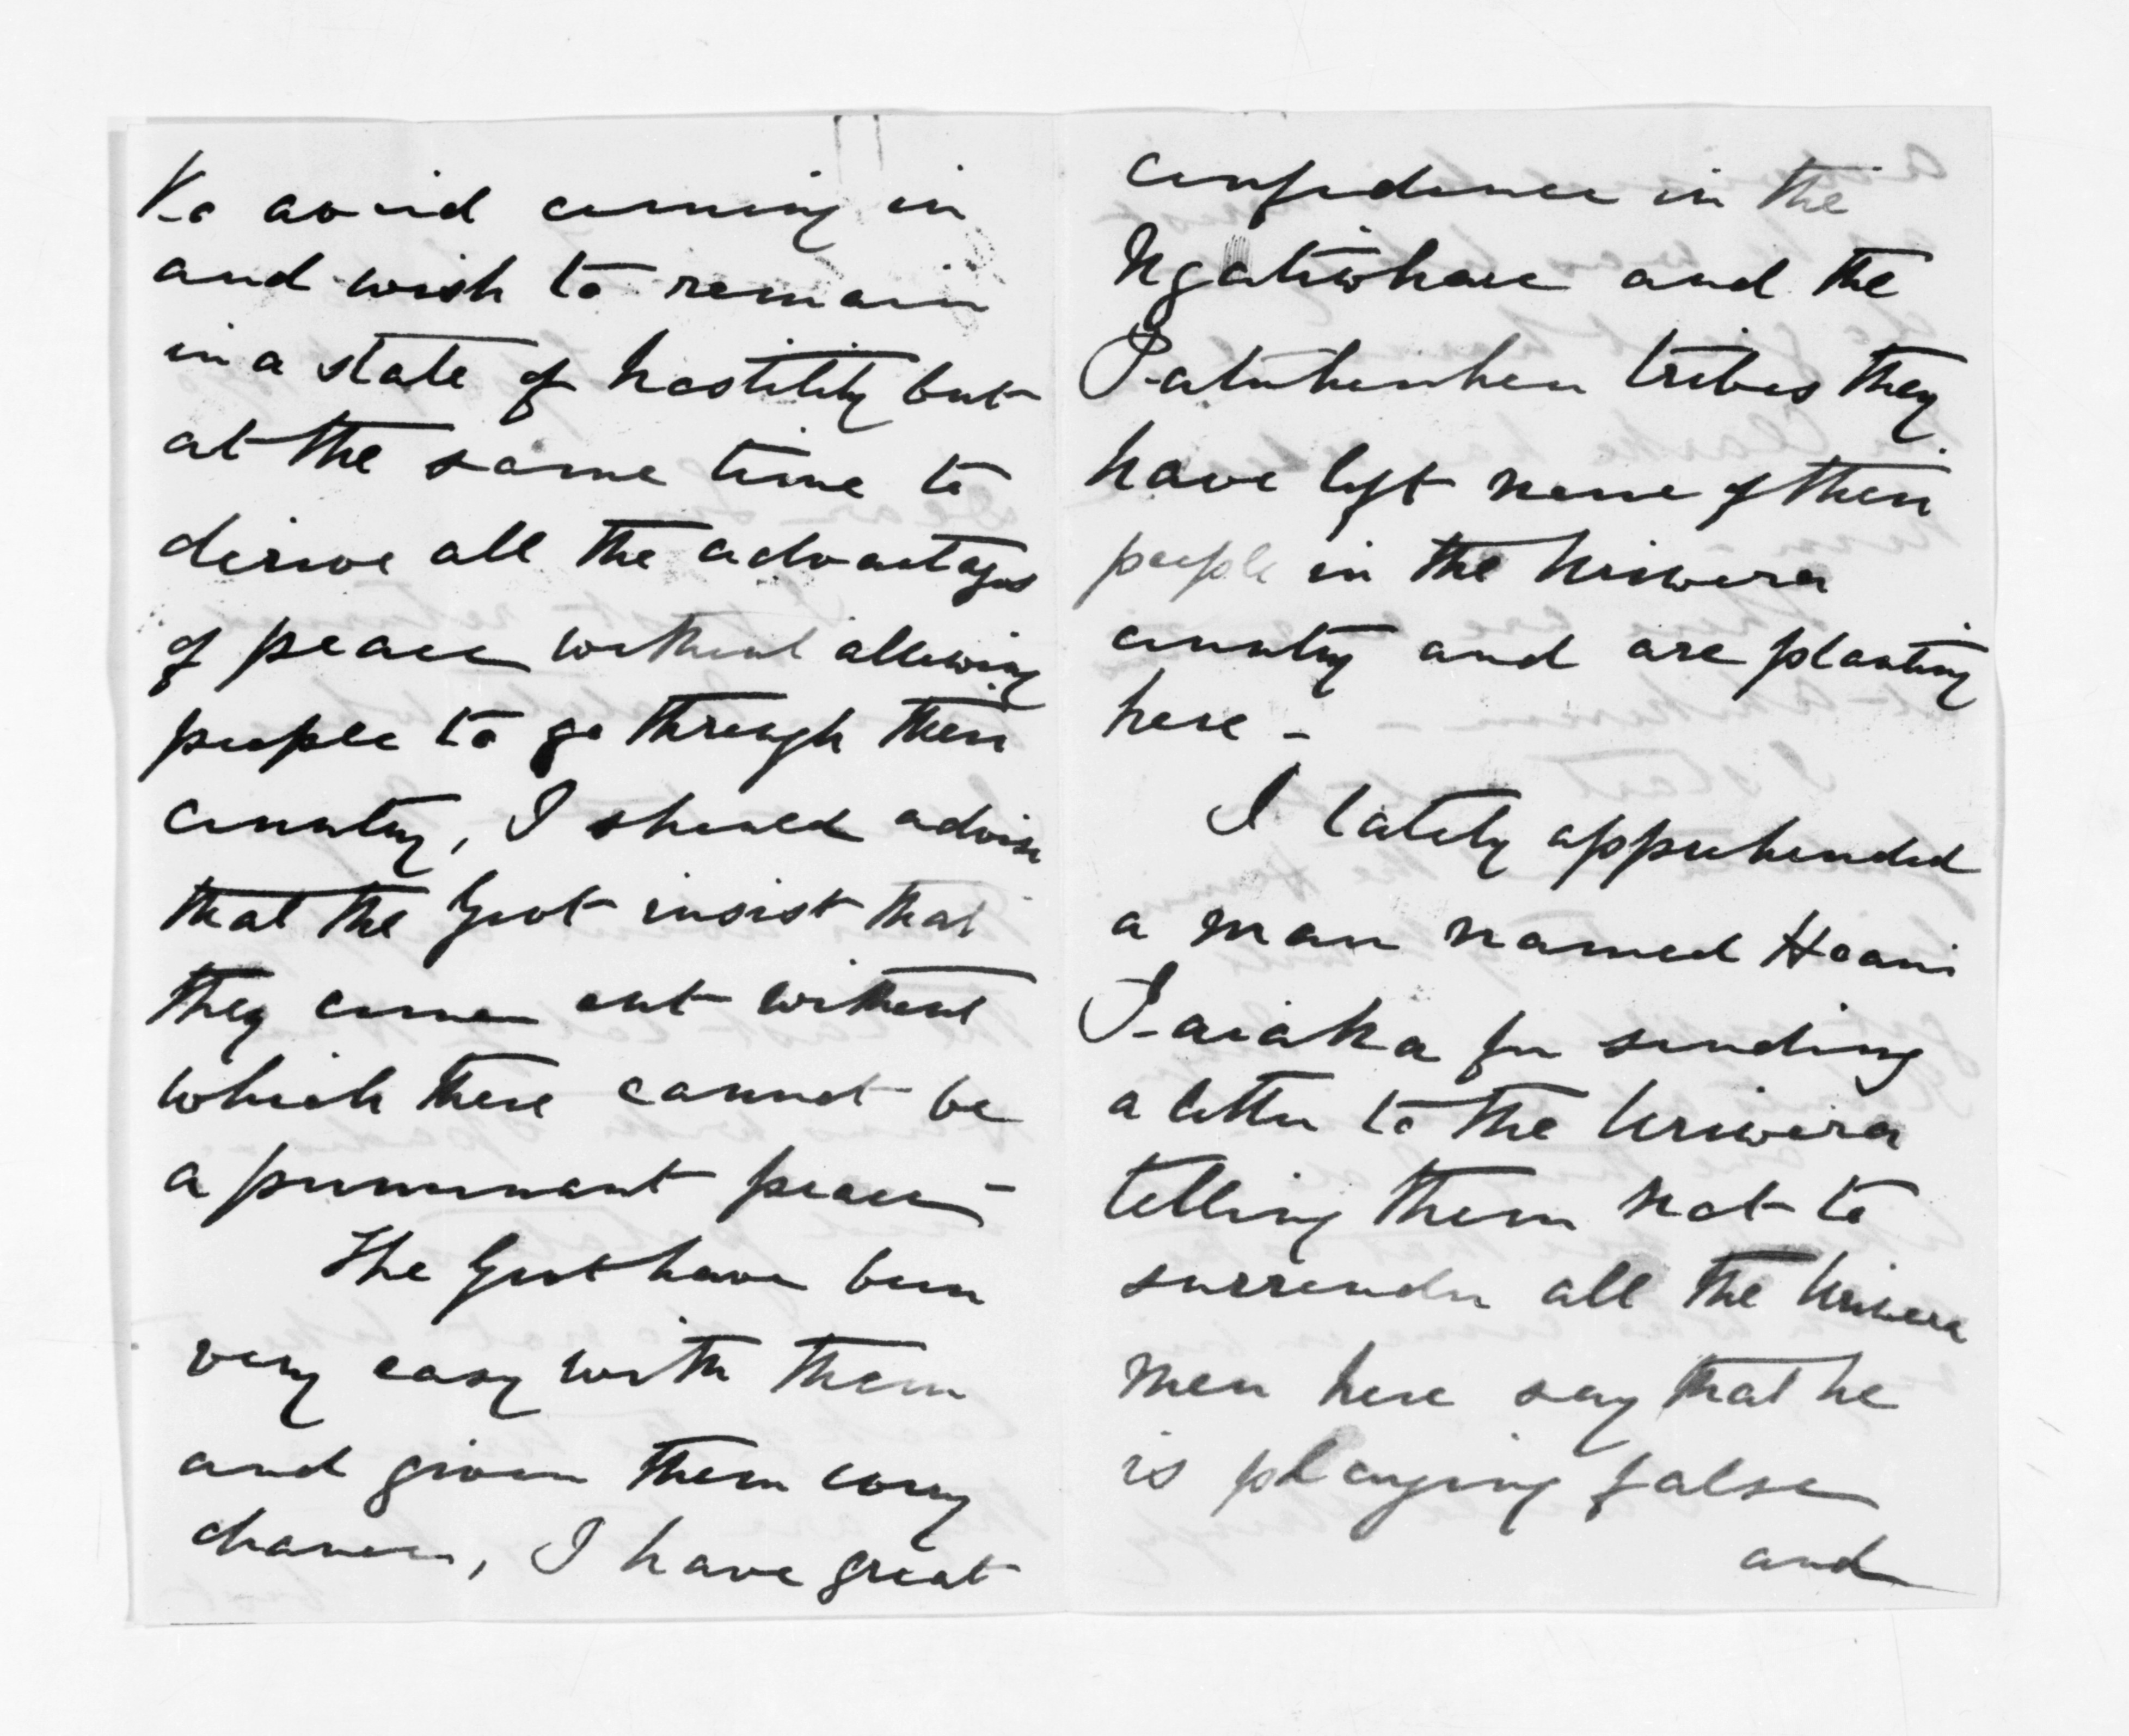 to avoid coming in
and wish to remain
in a state of hostility but
at the same time to
derive all the advantages
of peace without allowing
people to go through their
country, I should advise
that the Govt insist that
they come out without
which there cannot be
a permanent peace -
The Govt have been
very easy with them
and given them every
chance, I have great
confidence in the
Ngatiwhare and the
Patuheuheu tribes they
have left none of their
people in the Uriwera
country and are planting
here -
I lately apprehended
a man named Hoani
Taiaha for sending
a letter to the Uriwera
telling them not to
surrender all the Uriwera
men here say that he
is playing false
and